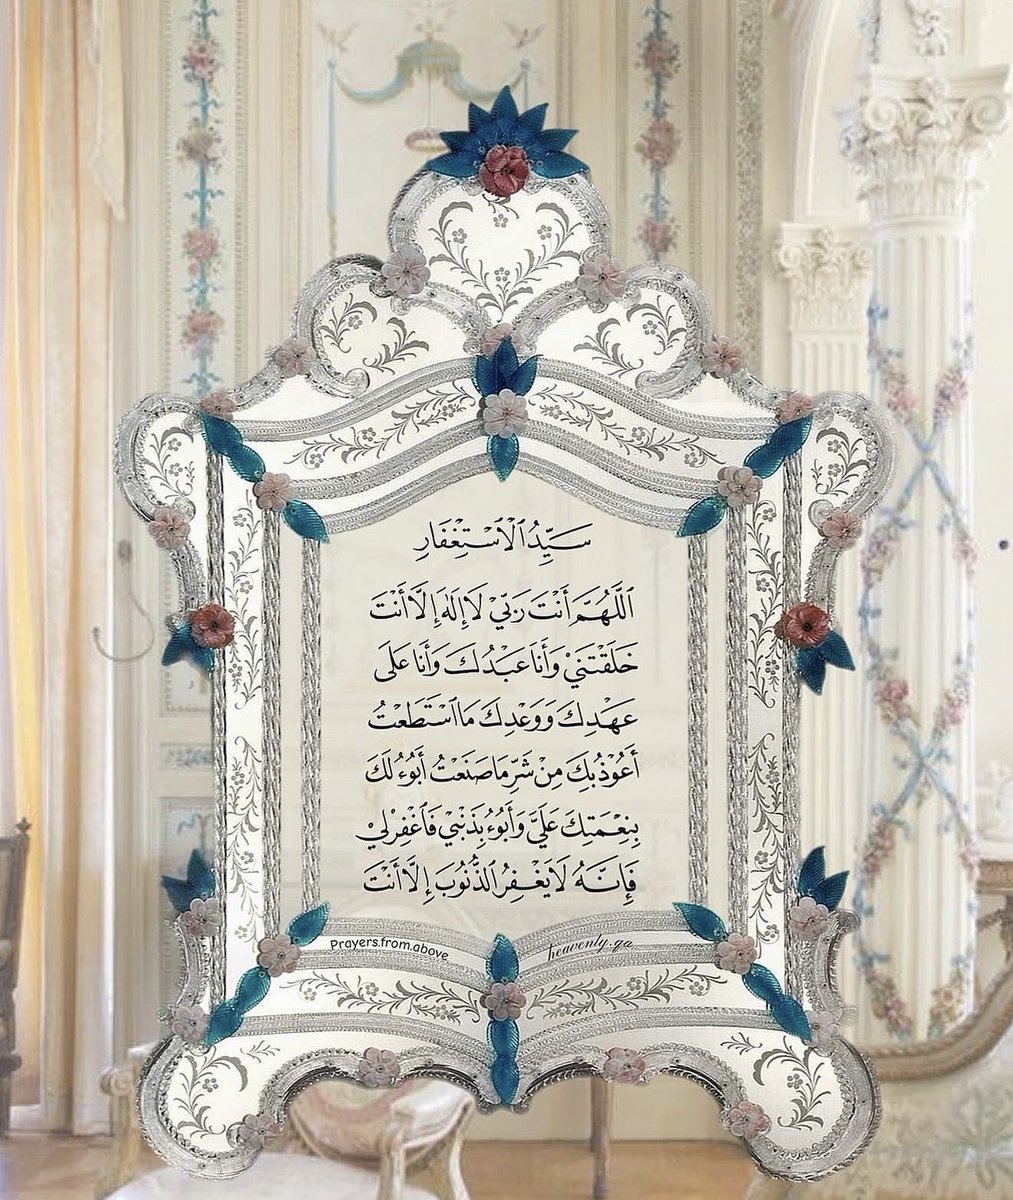 سَيِّدُ ٱلْاسْتِغْفَارِ
اَللَّهُمَّ أَنْتَ رَبِّيْ لَا إِلَهَ إِلَّا أَنْتَ
خَلَقْتَنِيْ وَأَنَا عَبْدُكَ وَأَنَا عَلَى
عَهْدِكَ وَوَعْدِكَ مَا ٱسْتَطَعْتُ
أَعُوْذُ بِكَ مِنْ شَرِّ مَا صَنَعْتُ أَبُوْءُ لَكَ
بِنِعْمَتِكَ عَلَيَّ وَأَبُوْءُ بِذَنْبِيْ فَٱغْفِرْ لِيْ
فَإِنَّهُ لَا يَغْفِرُ ٱلذُّنُوْبَ إِلَّا أَنْتَ
Prayers.from.above heavenly.ga